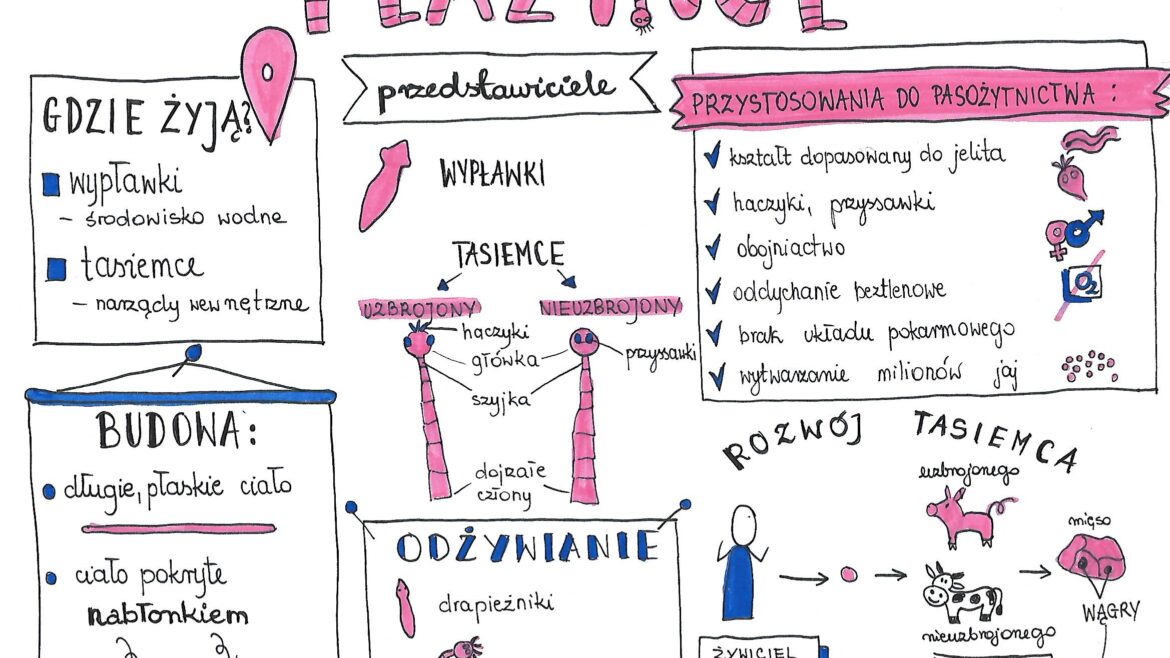 PŁAZIŃCE
GDZIE ŻYJĄ?
wypławki
– środowisko wodne
tasiemce
– narządy wewnętrzne
BUDOWA:
długie, płaskie ciało
ciało pokryte
nabłonkiem
przedstawiciele
WYPŁAWKI
TASIEMCE
UZBROJONY
NIEUZBROJONY
haczyki
główka
przyssawki
szyjka
dojrzałe
człony
ODŻYWIANIE
drapieżniki
PRZYSTOSOWANIA DO PASOŻYTNICTWA :
kształt dopasowany do jelita
haczyki, przyssawki
obojniactwo
oddychanie beztlenowe
O2
brak układu pokarmowego
wytwarzanie milionów jaj
ROZWÓJ TASIEMCA
uzbrojonego
mięso
WĄGRY
nieuzbrojonego
ŻYWICIEL